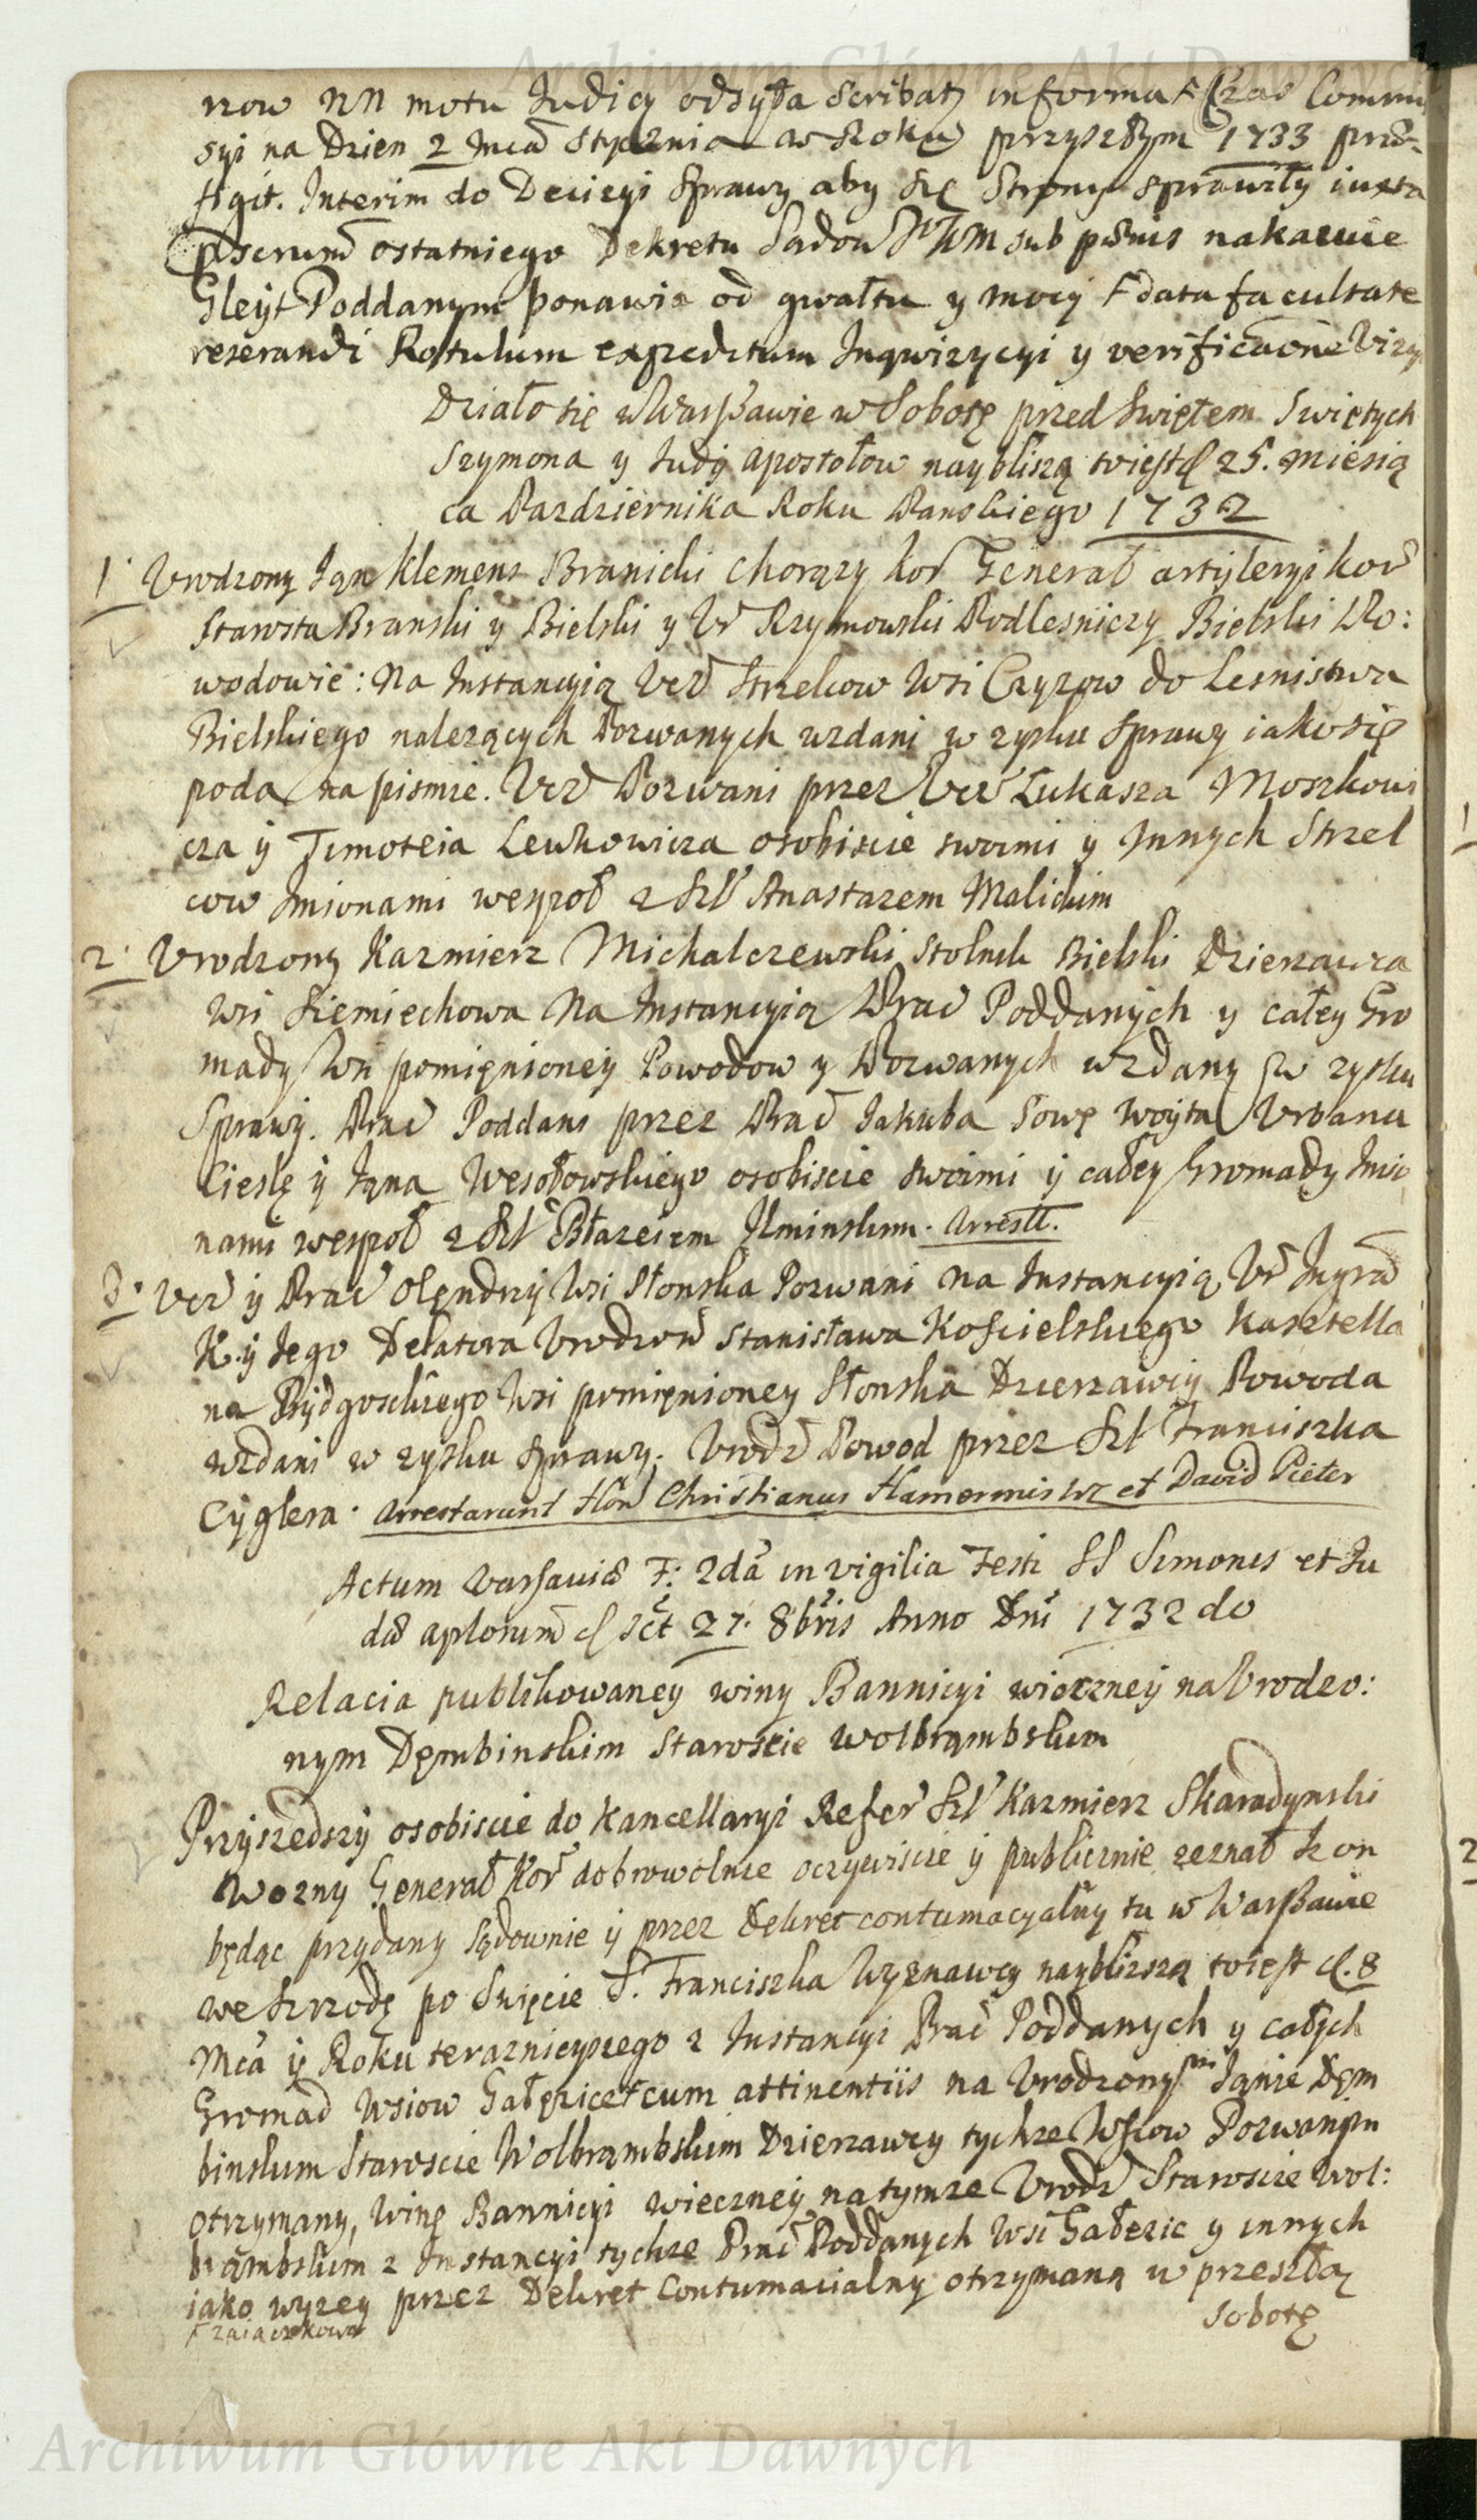 Archiwum Główne Akt Dawnych
rzow NN motu Judicy odsyła Scribat informat Czas Commi
syi na Dzien 2 Mca Stycznia w Roku przyszłym 1733 prae-
figit. Interim do Decizyi Sprawy aby się Strony sprawiły iuxta
ostatniego Dekretu Sądow sub nakazuie
Gleyt Poddanym ponawia od gwałtu y mocy data facultate
reserandi Rotulum expeditum Inqwizycyi y
Działo się w Warszawie w Sobotę przed Swiętem Swiętych
Szymona y Judy apostołow naybliszą toiest d 25. Miesią
ca Pazdziernika Roku Panskiego 1732
1. Vrodzony Jan Klemens Branicki Chorązy Kor Generał artyleryi Kor
Starosta Branski y Bielski y Vr Rzymowski Podlesniczy Bielski Po:
wodowie: Na Instancyią Ucz Strzelcow Wsi Czyzow do Lesnistwa
Bielskiego nalezących Pozwanych wzdani w zysku Sprawy iako się
poda na pismie. Ucz Pozwani przez Ucz Łukasza Moszkowi
cza y Timoteia Lewkowicza osobiscie swoimi y Innych Strzel
cow Imionami wespoł z Szl Anastazem Malickim
2. Vrodzony Kazmierz Michalczewski Stolnik Bielski Dzierzawca
Wsi Siemiechowa Na Instancyią Prac Poddanych y całey Gro
mady Wsi pomięnioney Powodow y Pozwanych wzdany w zysku
Sprawy. Prac Poddani przez Prac Jakuba Sowę Woyta Vrbana
Cieslę y Jana Wesołowskiego osobiscie swoimi y całey Gromady Imio
nami wespoł z Szl Błazeiem Ilminskim. Arrestt.
3. Ucz y Prac Olęndrzy Wsi Słonska Pozwani Na Instancyią Vr Instig
K. y Jego Delatora Vrodzon Stanisława Koscielskiego Kasztella
na Bydgoskiego Wsi pomięnioney Słonska Dzierzawcy Powoda
wzdani w zysku Sprawy. Vrodz Powod przez Szl Franciszka
Cyglera. Arrestarunt Hon Christianus Hamermistrz et David Pieter
Actum Varsaviae F: 2da in vigilia Festi SS Simonis et Ju
dae aplorum d sct 27. 8bris Anno Dni 1732do
Relacia publikowaney winy Bannicyi wieczney na Vrodzo:
nym Dęmbinskim Staroscie Wolbrąmbskim
Przyszedszy osobiscie do Kancellaryi Refer Szl Kazmierz Skaradynski
Wozny Generał Kor dobrowolnie oczywiscie y publicznie zeznał Iz on
będąc przydany Sądownie y przez Dekret contumacyalny tu w Warszawie
we Srzodę po Swięcie S. Franciszka Wyznawcy naybliszszą toiest d. 8
Mca y Roku teraznieyszego z Instancyi Prac Poddanych y całych
Gromad Wsiow Gałęzice cum attinentiis na Vrodzonym Janie Dęm
binskim Staroscie Wolbrąmbskim Dzierzawcy tychze Wsiow Pozwanym
otrzymany, Winę Bannicyi wieczney na tymze Vrodz Staroscie Wol:
brąmbskim z Instancyi tychze Prac Poddanych Wsi Gałęzic y innych
iako wyzey przez Dekret Contumacialny otrzymaną w przeszłą
Zaiączkowa
Sobotę
Archiwum Główne Akt Dawnych